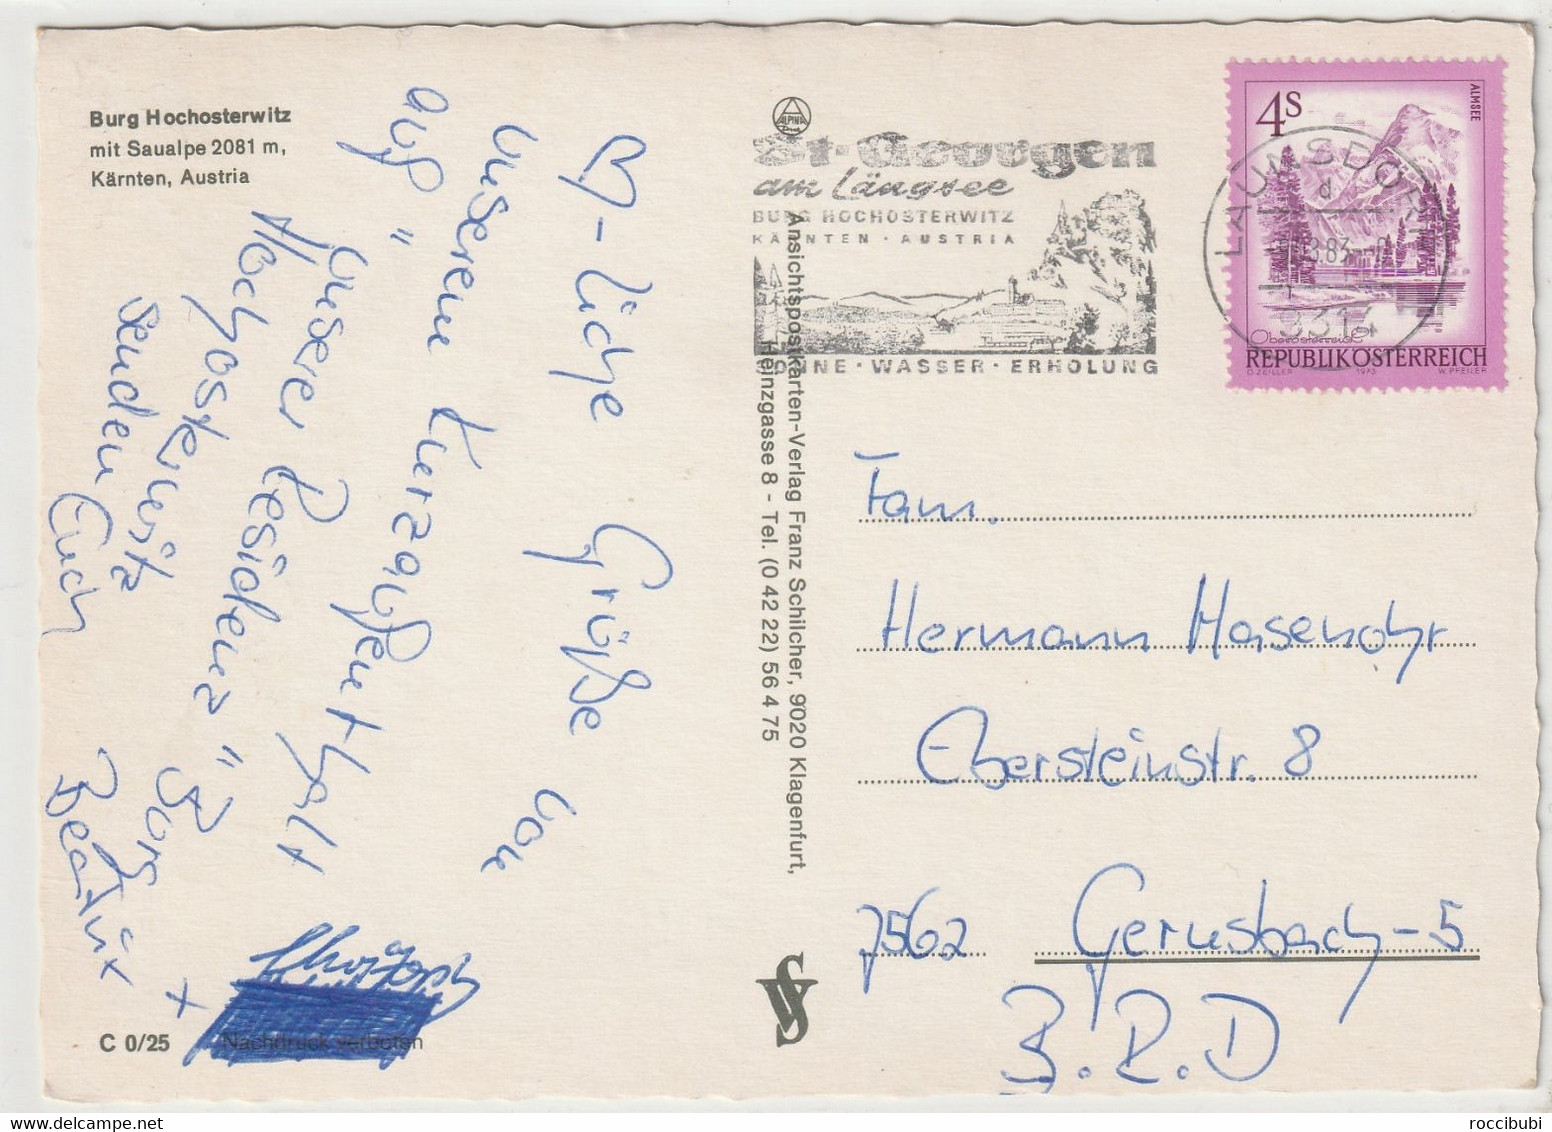 Burg Hochosterwitz
mit Saualpe 2081 m,
Kärnten, Austria
♡-liche Grüße von
unserem Kurzaufenthalt
auf "unserer Residenz"
Hochosterwitz
senden Euch
Beatrix +
C 0/25
Nachdruck verboten
ALPINA
St. Georgen
am Längsee
BURG HOCHOSTERWITZ
KÄRNTEN · AUSTRIA
SONNE · WASSER · ERHOLUNG
Ansichtspostkarten-Verlag Franz Schilcher, 9020 Klagenfurt,
Heinzgasse 8 - Tel. (0 42 22) 56 4 75
4S
ALMSEE
Oberösterreich
REPUBLIK ÖSTERREICH
O. ZEILLER 1973 W. PFEILER
LAUNSDORF
d
8.83
9314
Fam.
Hermann Hasenohr
Ebersteinstr. 8
7562 Gernsbach-5
B.R.D
roccibubi